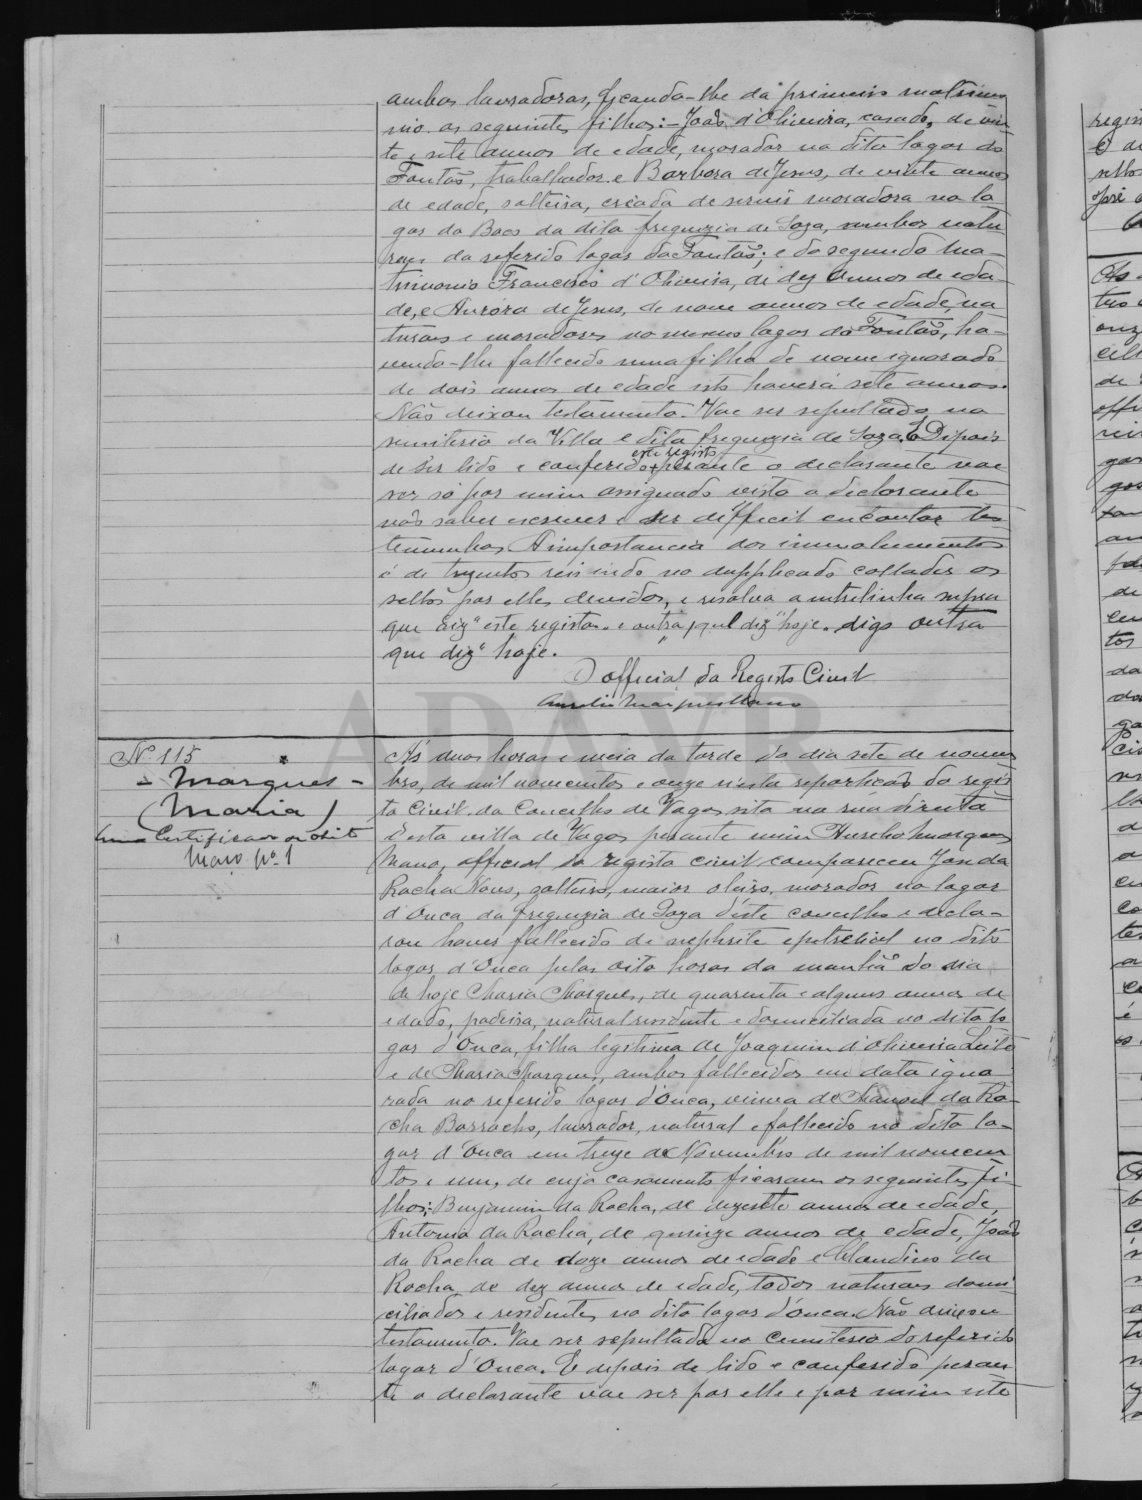 ambos lavradores, ficando-lhe da primeiro matrimo
nio os seguintes filhos:- João d'Oliveira, casado, de vin
te e sete annos de edade, morador no dito logar do
Fontão, trabalhador e Barbora de Jesus, de vinte annos
de edade, solteira, creada de servir moradora no lo-
gar da Boco da dita freguezia de Soza, ambos natu
raes do referido logar do Fontão; e do segundo ma-
trimonio Francisco d'Oliveira, de dez annos de eda
de, e Aurora de Jesus, de nove annos de edade, na
turaes e moradores no mesmo logar do Fontão, ha-
vendo-lhe fallecido uma filha de nome ignorado
de dois annos de edade isto haverá sete annos.
Não deixou testamento. Vae ser sepultado no
cemiterio da Villa e dita freguezia de Soza. E Depois
de ser lido e conferido este registo perante o declarante vae
ser só por mim assignado visto o declarante
não saber escrever e ser difficil encontrar tes
temunhas. A importancia dos emmolumentos
é de trezentos reis indo no dupplicado collados os
sellos por elles devidos, e resalva a entrelinha supra
que diz "este registo" e outra, que diz "hoje". digo outra
que diz "hoje".
O official do Registo Civil
Aurelio Marques Mano
ADAVR
Nº 115
- Marques -
(Maria)
Certificar
Mano nº 1
Ás duas horas e meia da tarde do dia sete de novem
bro, de mil novecentos e onze n'esta repartição do regis
to Civil do Concelho de Vagos sita na rua direita
d'esta villa de Vagos perante mim Aurelio Marques
Mano, official do registo civil compareceu José da
Rocha Novo, solteiro, maior oleiro, morador no logar
d'Ouca da freguezia de Soza d'este concelho e decla-
rou haver fallecido de nephrite epithelial no dito
logar d'Ouca pelas oito horas da manhã do dia
de hoje Maria Marques, de quarenta e alguns annos de
edade, padeira, natural residente e domiciliada no dito lo
gar d'Ouca, filha legitima de Joaquim d'Oliveira Leite
e de Maria Marques, ambos fallecidos em data igno
rada no referido logar d'Ouca, viuva de Manoel da Ro-
cha Borracho, lavrador, natural e fallecido no dito lo-
gar d'Ouca em treze de Novembro de mil novecen
tos e um, de cujo casamento ficaram os seguintes fi-
lhos: Benjamin da Rocha, de dezesete annos de edade,
Antonio da Rocha, de quinze annos de edade, João
da Rocha de doze annos de edade e Claudino da
Rocha de dez annos de edade, todos naturaes domi
ciliados e residentes no dito logar d'Ouca. Não deixou
testamento. Vae ser sepultada no Cemiterio do referido
logar d'Ouca. E depois de lido e conferido peran
te o declarante vae ser por elle e por mim este